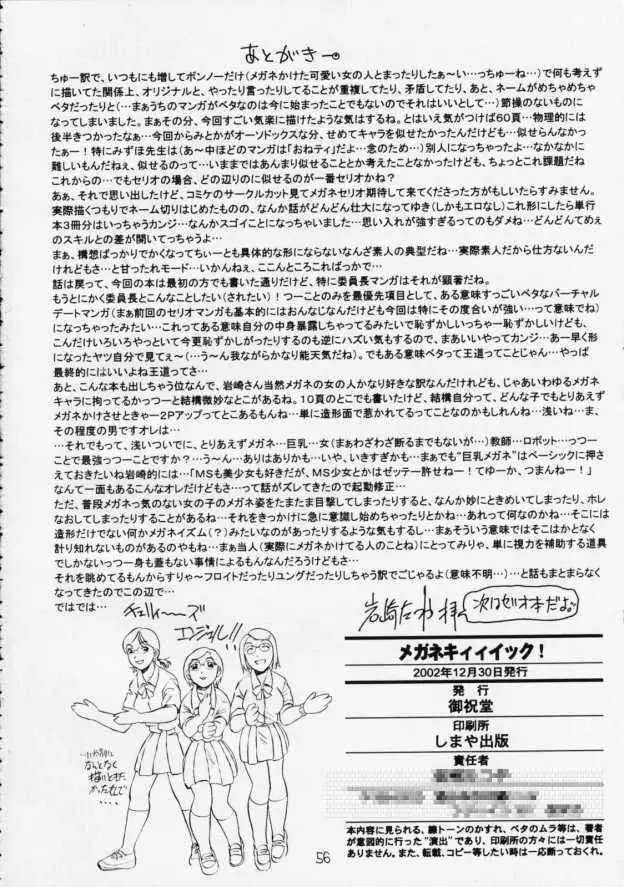 あとがきー
ちゅー訳で、いつもにも増してボンノーだけ(メガネかけた可愛い女の人とまったりしたぁ～い…っちゅーね…)で何も考えず
に描いてた関係上、オリジナルと、やったり言ったりしてることが重複してたり、矛盾してたり、あと、ネームがめちゃめちゃ
ベタだったりと(…まぁうちのマンガがベタなのは今に始まったことでもないのでそれはいいとして…)節操のないものに
なってしまいました。まぁその分、今回すごい気楽に描けたような気はするね。とはいえ気がつけば60頁…物理的には
後半きつかったなぁ…今回からみとかがオーソドックスな分、せめてキャラを似せたかったんだけども…似せらんなかっ
たぁー！特にみずほ先生は(あ～中ほどのマンガは「おねティ」だよ…念のため…)別人になっちゃったよ…なかなかに
難しいもんだねぇ、似せるのって…いままではあんまり似せることとか考えたことなかったけども、ちょっとこれ課題だね
これからの…でもセリオの場合、どの辺りのに似せるのが一番セリオかね？
あぁ、それで思い出したけど、コミケのサークルカット見てメガネセリオ期待して来てくださった方がもしいたらすみません。
実際描くつもりでネーム切りはじめたものの、なんか話がどんどん壮大になってゆき(しかもエロなし)これ形にしたら単行
本3冊分はいっちゃうカンジ…なんかスゴイことになっちゃいました…思い入れが強すぎるってのもダメね…どんどんてめぇ
のスキルとの差が開いてっちゃうよ…
まぁ、構想ばっかりでかくなってちぃーとも具体的な形にならないなんざ素人の典型だね…実際素人だから仕方ないんだ
けれどもさ…と甘ったれモード…いかんねぇ、ここんところこればっかで…
話は戻って、今回の本は最初の方でも書いた通りだけど、特に委員長マンガはそれが顕著だね。
もうとにかく委員長とこんなことしたい(されたい)！つーことのみを最優先項目として、ある意味すっごいベタなバーチャル
デートマンガ(まぁ前回のセリオマンガも基本的にはおんなじなんだけども今回は特にその度合いが強い…って意味でね)
になっちゃったみたい…これってある意味自分の中身暴露しちゃってるみたいで恥ずかしいっちゃー恥ずかしいけども、
こんだけいろいろやっといて今更恥ずかしがったりするのも逆にハズい気もするので、まあいいやってカンジ…あー早く形
になったヤツ自分で見てぇ～(…う～ん我ながらかなり能天気だね)。でもある意味ベタって王道ってことじゃん…やっぱ
最終的にはいいよね王道ってさ…
あと、こんな本も出しちゃう位なんで、岩崎さん当然メガネの女の人かなり好きな訳なんだけれども、じゃあいわゆるメガネ
キャラに拘ってるかっつーと結構微妙なとこがあるね。10頁のとこでも書いたけど、結構自分って、どんな子でもとりあえず
メガネかけさせときゃー2Pアップってとこあるもんね…単に造形面で惹かれてるってことなのかもしれんね…浅いね…ま、
その程度の男ですオレは…
…それでもって、浅いついでに、とりあえずメガネ…巨乳…女(まぁわざわざ断るまでもないが…)教師…ロボット…っつー
ことで最強っつーことですか？…う～ん…ありはありかも…いや、いきすぎかも…まぁでも“巨乳メガネ”はベーシックに押さ
えておきたいね岩崎的には…「MSも美少女も好きだが、MS少女とかはゼッテー許せねー！てゆーか、つまんねー！」
なんて一面もあるこんなオレだけどもさ…って話がズレてきたので起動修正…
ただ、普段メガネっ気のない女の子のメガネ姿をたまたま目撃してしまったりすると、なんか妙にときめいてしまったり、ホレ
なおしてしまったりすることがあるね…それをきっかけに急に意識し始めちゃったりとかね…あれって何なのかね…そこには
造形だけでない何かメガネイズム(？)みたいなのがあったりするような気もするし…まぁそういう意味ではそこはかとなく
計り知れないものがあるのやもね…まぁ当人(実際にメガネかけてる人のことね)にとってみりゃ、単に視力を補助する道具
でしかないっつー身も蓋もない事情によるもんなんだろうけどもさ…
それを眺めてるもんからすりゃ～フロイトだったりユングだったりしちゃう訳でござるよ(意味不明…)…と話もまとまらなく
なってきたのでこの辺で…
ではでは…
岩崎たつや 拝
チェリィーーズ
エンジェル!!
メガネキィィイック！
2002年12月30日発行
発 行
御祝堂
印刷所
しまや出版
責任者
なんとなく
描いときた
かったので
・・・・
本内容に見られる、線トーンのかすれ、ベタのムラ等は、著者
が意図的に行った“演出”であり、印刷所の方々には一切責任
ありません。また、転載、コピー等したい時は一応断っておくれ。
56